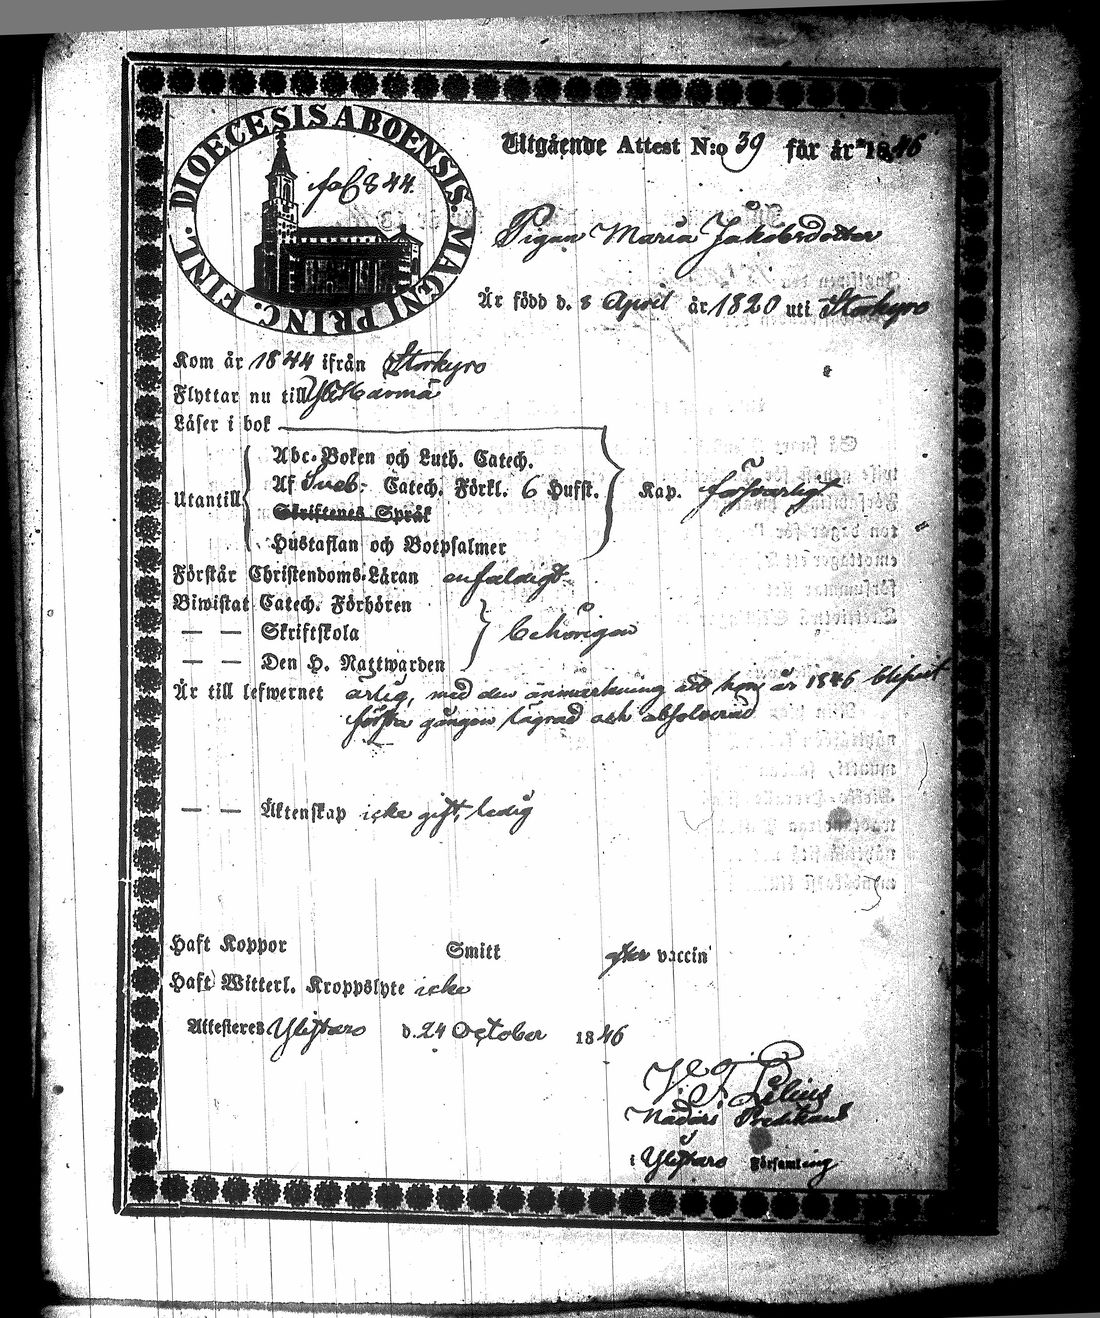 DIOECESIS ABOENSIS. MAGNI PRINC. FINL.
fol 844.
Utgående Attest N:o 39 för år 1846
Pigan Maria Jakobsdotter
Är född d. 8 April år 1820 uti Storkyro
Kom år 1844 ifrån Storkyro
Flyttar nu till YliHärmä
Läser i bok
Abc-Boken och Luth. Catech.
Utantill Af Sveb. Catech. Förkl. 6 Hufst. Kap. försvarligt
Skriftenes Språk
Hustaflan och Botpsalmer
Förstår Christendoms-Läran enfaldigt
Biwistat Catech. Förhören
— — Skriftskola behörigen
— — Den H. Nattwarden
Är till lefwernet ärlig, med den anmärkning att hon år 1846 blifvit
första gången lägrad och absolverad
— — Äktenskap icke gift, ledig
Haft Koppor Smitt efter vaccin
Haft Witterl. Kroppslyte icke
Attesteras Ylistaro d. 24 October 1846
Nådårs Predikant
i Ylistaro Församling